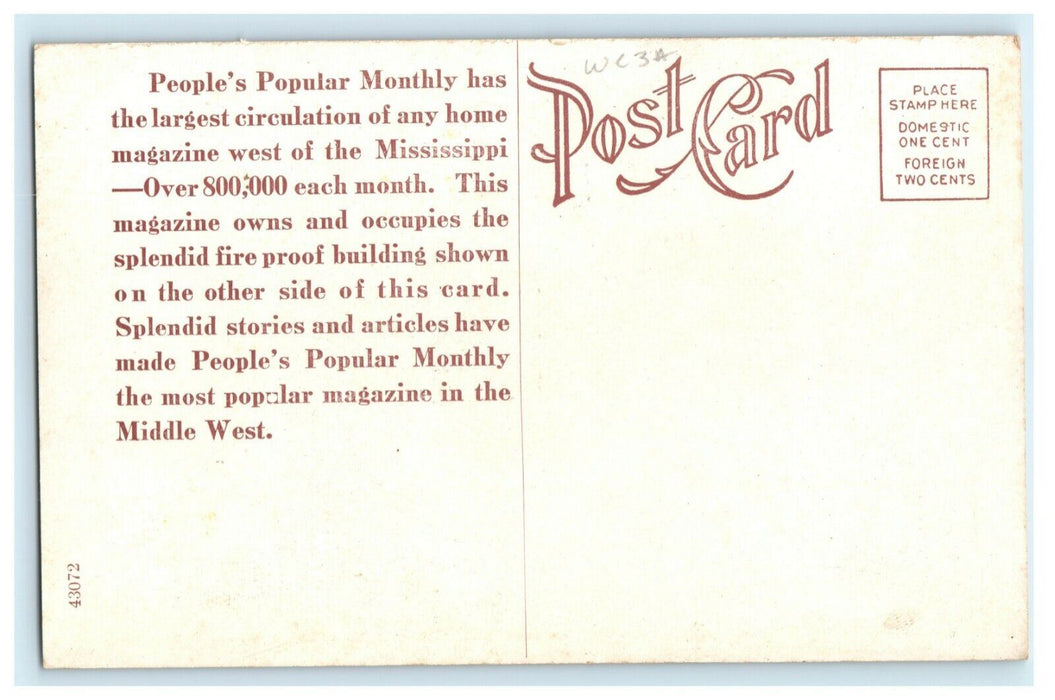 People's Popular Monthly has
the largest circulation of any home
magazine west of the Mississippi
—Over 800,000 each month. This
magazine owns and occupies the
splendid fire proof building shown
on the other side of this card.
Splendid stories and articles have
made People's Popular Monthly
the most popular magazine in the
Middle West.
43072
WC3A
Post Card
PLACE
STAMP HERE
DOMESTIC
ONE CENT
FOREIGN
TWO CENTS